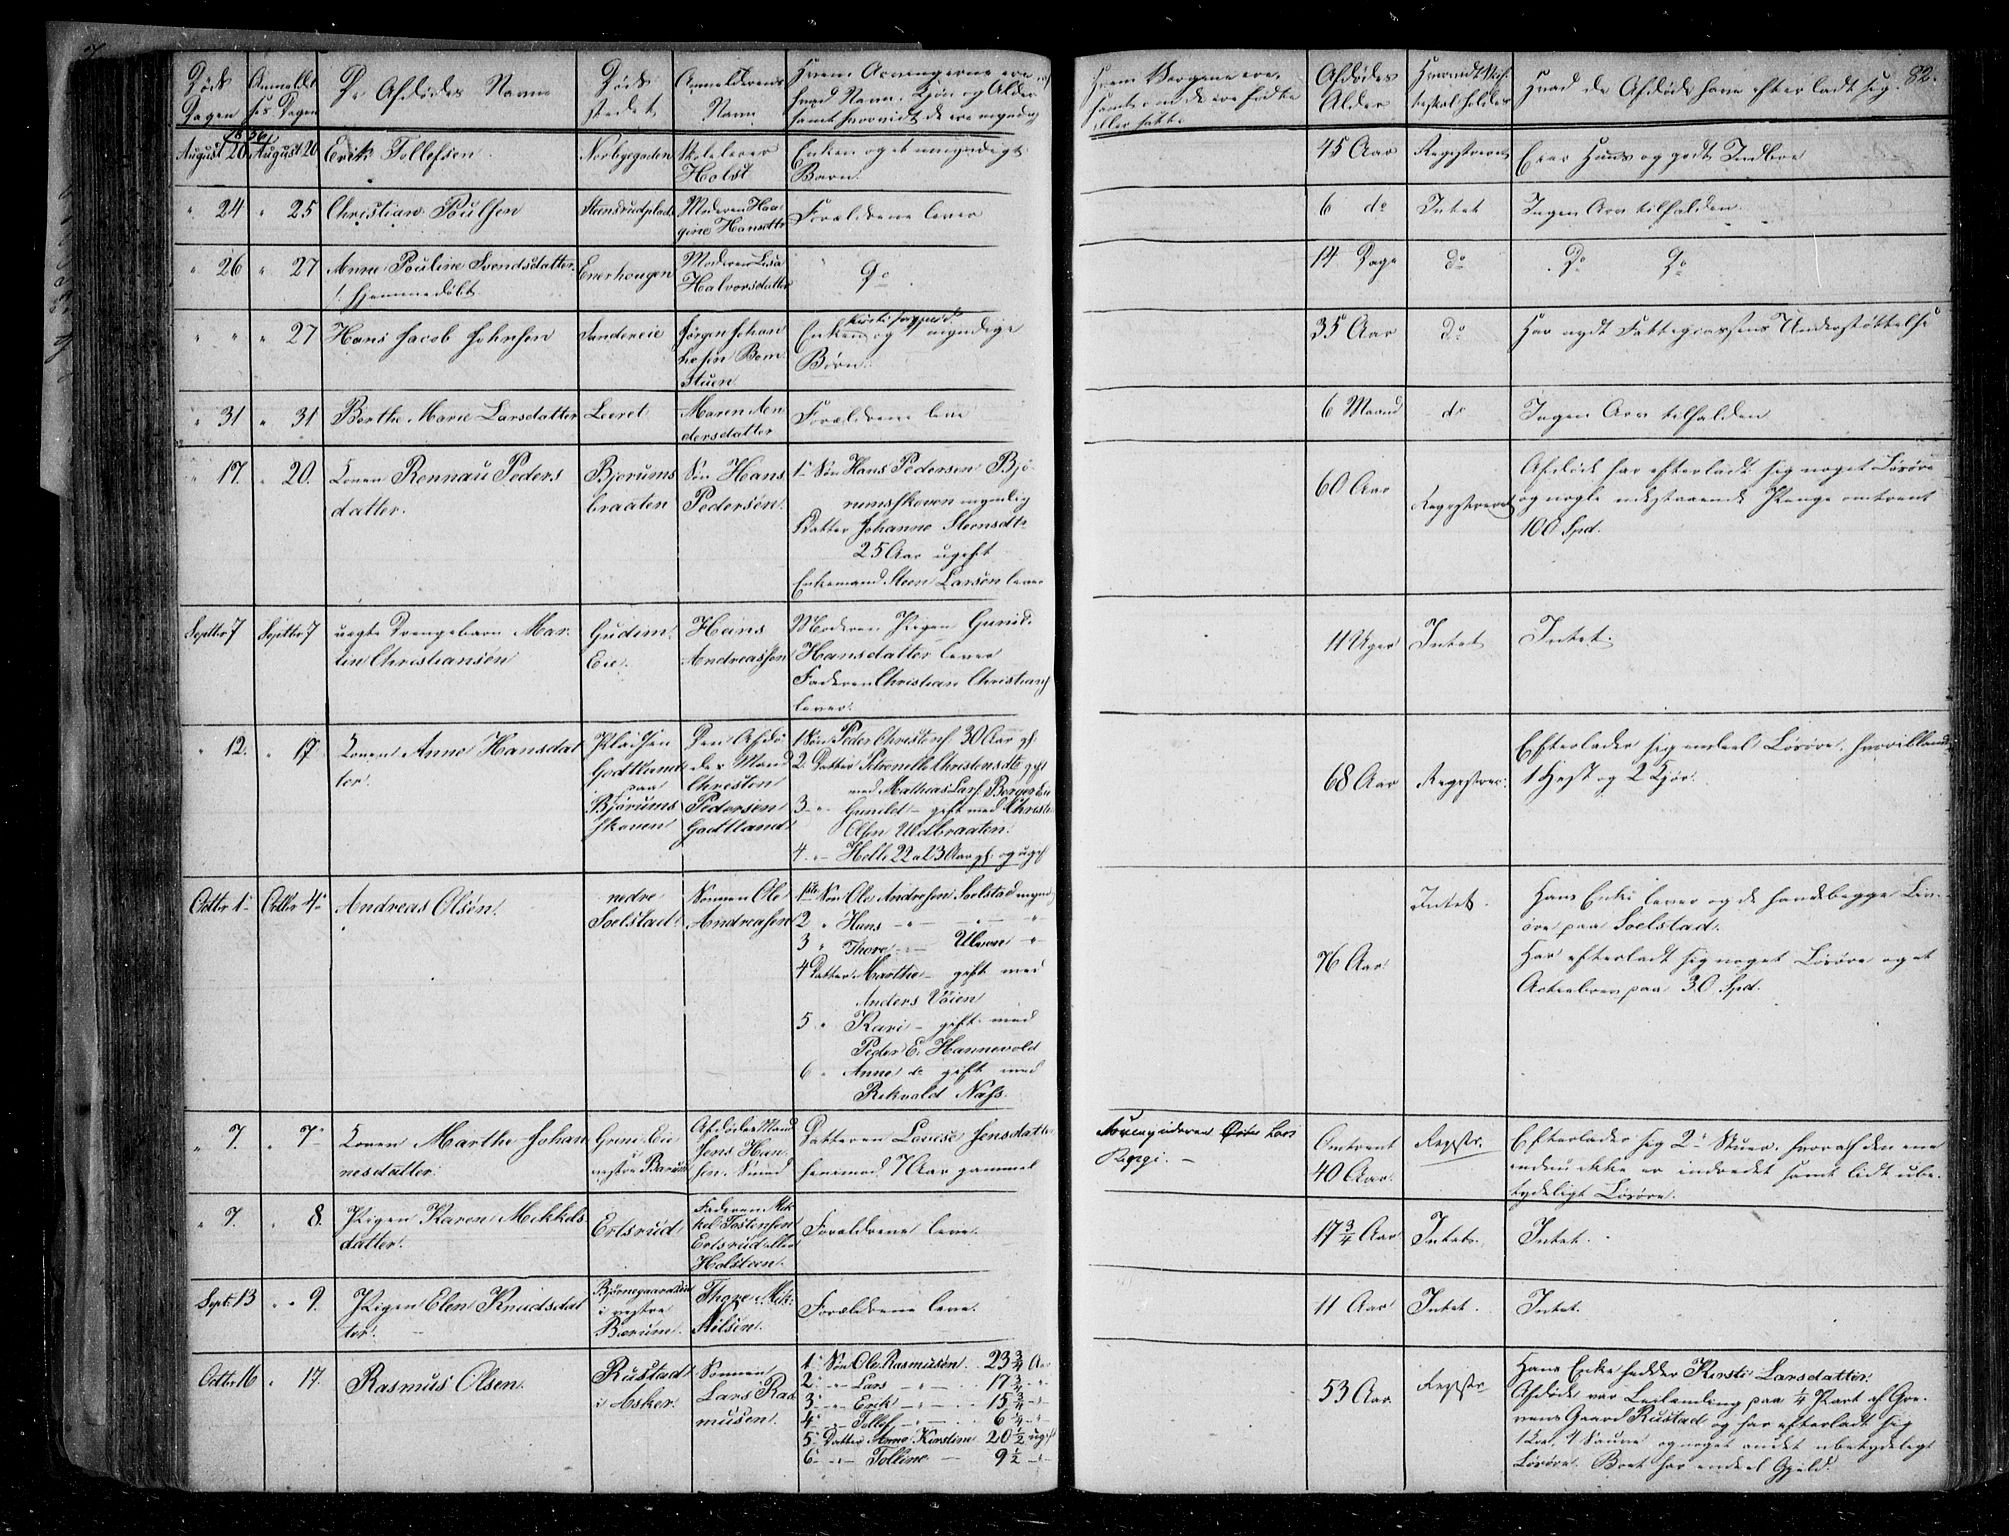 82.
Døds Dagen
Anmeldelses Dagen
De Afdødes Navne
Døds stedet
Anmelderens Navn
Hvem Arvingerne ere
hvad Navn, Kjøn og Alder
samt hvorvidt de ere myndig
Afdødes Alder
Hvad de Afdøde have efterladt sig
August 20 August 20 Erik Tollefsen
Skolelærer
Holst
Enken og et umyndigt
Barn.
45 Aar Registreret Eier Huus og godt Indboe
" 24 " 25 Christian Poulsen
Moderen
Hansdttr
Forældrene lever
6 do Intet Ingen Arv tilfalden
" 26 " 27 Anne Pouline Svendsdatter
hjemmedøbt
Enerhougen
Moderen Lisa
Halvorsdatter
Do
14 Dage do Do Do
" " " 27 Hans Jacob Johnsen
Sandereie
Jørgen Johan
Bom
Stuen
Enken og myndige
Børn
35 Aar do Har nydt Fattigcassens Understøttelse
" 31 " 31 Berthe Marie Larsdatter
Leeret
Maren An
dersdatter
Forældrene leve
6 Maand do Ingen Arv tilfalden
" 17. " 20. Konen Rønnau Peders
datter.
Bjerums
braaten
Søn Hans
Pedersen.
1 Søn Hans Pedersen Bjø
rumsskoven myndig
Datter Johanne Steensdtr
25 Aar ugift
Enkemand Steen Larsen lever
60 Aar Registreret
Afdøde har efterladt sig noget Løsøre
og nogle udestaaende Penge omtrent
100 Spd.
Septbr 7 Septbr 7 uegte Drengebarn Mar
tin Christiansen
Gudim
Eie.
Hans
Andreassen
Moderen Pigen Gunild
Hansdatter lever
Faderen Christian Christians
lever.
11 Uger Intet Intet.
" 12. " 17 Konen Anne Hansdat
ter.
Pladsen
Godtland
paa
Bjørums
skoven
Den Afdø
des Mand
Christen
Pedersen
Godtland
1 Søn Peder Christens 30 Aar gl.
2. Datter Petronelle Christensdtr gift
med Mathias Lars. Borger Eie
3 - " - Gunild - gift med Christi
Olsen Uldbraaten.
4. - Helle 22 a 23 Aar gl. og ugif
68 Aar Registrer.
Efterlader sig endeel Løsøre, hvoriblandt
1 Hest og 2 Kjør.
Octbr 1 Octbr 4 Andreas Olsen.
nedre
Soelstad.
Sønnen Ole
Andreasen
1ste Søn Ole Andresen Soelstad mynd
2 " Hans - " -
3 " Thore - " - Ulven "
4 Datter Marthe - gift med
Anders Voien
5 " Kari - gift med
Peder E. Hannevold
6 " Anne do gift med
Rikvold Næss.
76 Aar Intet.
Hans Enke lever og de havde begge Liv
øre paa Soelstad.
Har efterladt sig noget Løsøre og et
Actiebrev paa 30 Spd.
" 7. " 7 Konen Marthe Johan
nesdatter.
Grini Eie
vestre Bærum
Afdødes Mand
Jens Han
sen. Smed
Datteren Lovise Jensdatter
henimod 7 Aar gammel
Omtrent
40 Aar.
Regstr.
Efterlader sig 2 Stuer hvoraf den ene
endnu ikke er indredet samt lidt ube
tydeligt Løsøre.
" 7. " 8. Pigen Karen Mikkels
datter.
Ertsrud
Faderen Mik
kel Tostensen
Ertsrud eller
Holsteen.
Forældrene leve.
17 3/4 Aar Intet. Intet.
Sept. 13 " " 9. Pigen Elen Knudsdat
ter.
i vestre
Bærum.
Thore Mik
Nilsen.
Forældrene leve.
11 Aar Intet. Intet.
Octbr 16 " 17. Rasmus Olsen.
Rustad
i Asker.
Sønnen
Lars Ras
musen.
1 Søn Ole Rasmusen. 23 3/4 Aar
2 " - Lars - " - 17 3/4 - "
3 - " - Erik - " - 15 3/4 - "
4 - " - Tollef - " - 6 1/4 - "
5 Datter Anne Kirstine 20 1/2 ugift
6 - " - Tolline - 9 1/2 - "
53 Aar. Regstr
Hans Enke hedder Kirsti Larsdatter.
Afdøde var Leilænding paa 1/4 Part af
Gaard Rustad og har efterladt sig
1 Koe, 4 Sauer og noget andet ubetydeligt
Løsøre. Boet har endel Gjeld.